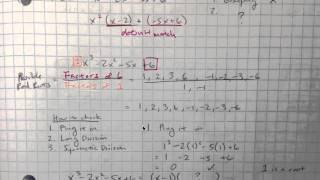 ?
x² (x-2) + (-5x+6)
doesn't match
1x³ - 2x² - 5x + 6
Possible Factors of 6 = 1, 2, 3, 6, -1, -2, -3, -6
Factors of 1 1, -1
= 1, 2, 3, 6, -1, -2, -3, -6
How to check
1. Plug it in
2. Long Division
3. Synthetic Division
1. Plug it
1³ - 2(1)² - 5(1) + 6
= 1 - 2 - 5 + 6
= 0
1 is a root
x³ - 2x² - 5x + 6 = (x-1)( ? )